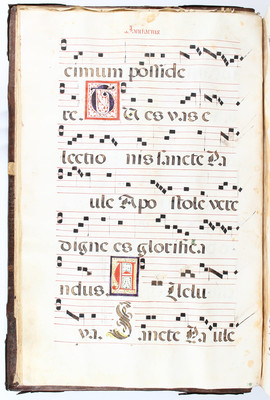 cimum posside
re. Tu es vas e
lectio nis sancte Pa
ule Apo stole vere
digne es glorifica
ndus. Allelu
ya. Sancte Paule